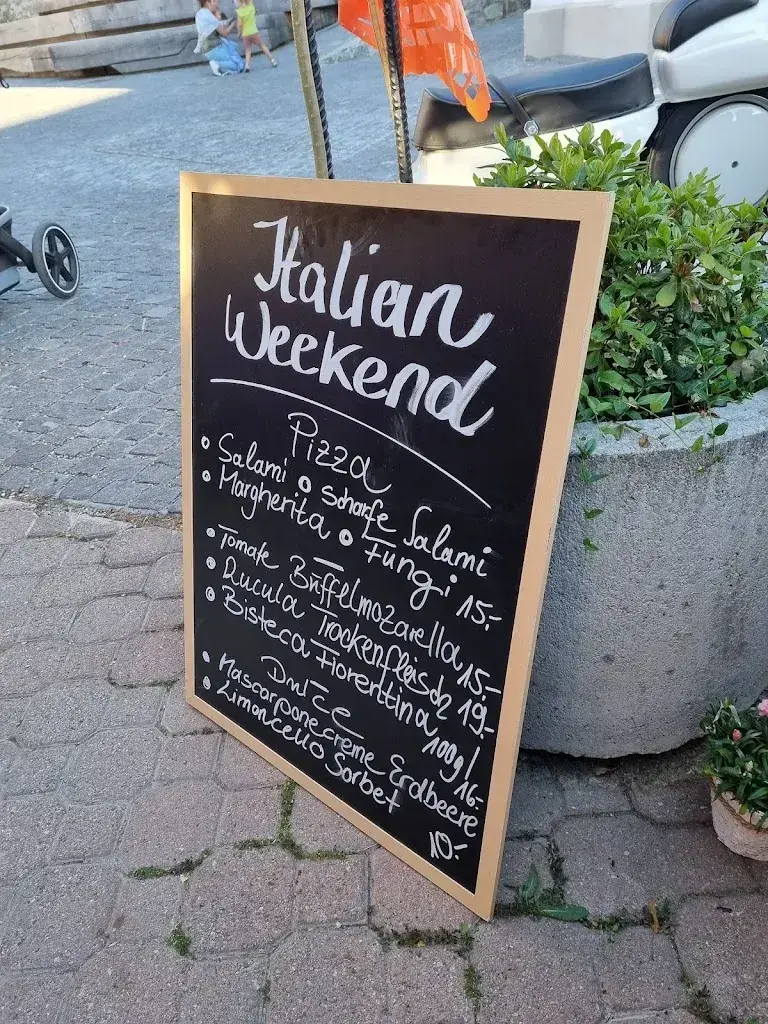 Italian
Weekend
Pizza
• Salami • Scharfe Salami
• Margherita • Fungi 15.-
• Tomate Büffelmozarella 15.-
• Rucula Trockenfleisch 19.-
• Bisteca Fiorentina 100g/
16.-
Dulce
• Mascarponecreme Erdbeere
• Limoncello Sorbet
10.-